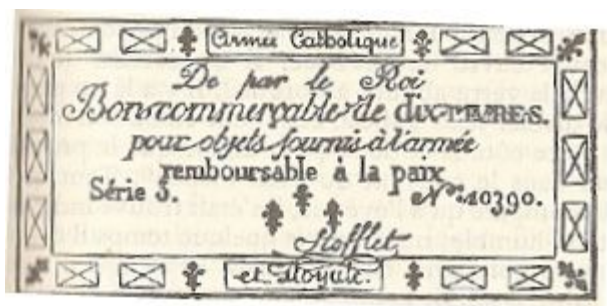 Armée Catholique
De par le Roi
Bon commerçable de dix-livres.
pour objets fournis à l'armée
remboursable à la paix
Série 3. N.º 10390.
Stofflet
et Royale.